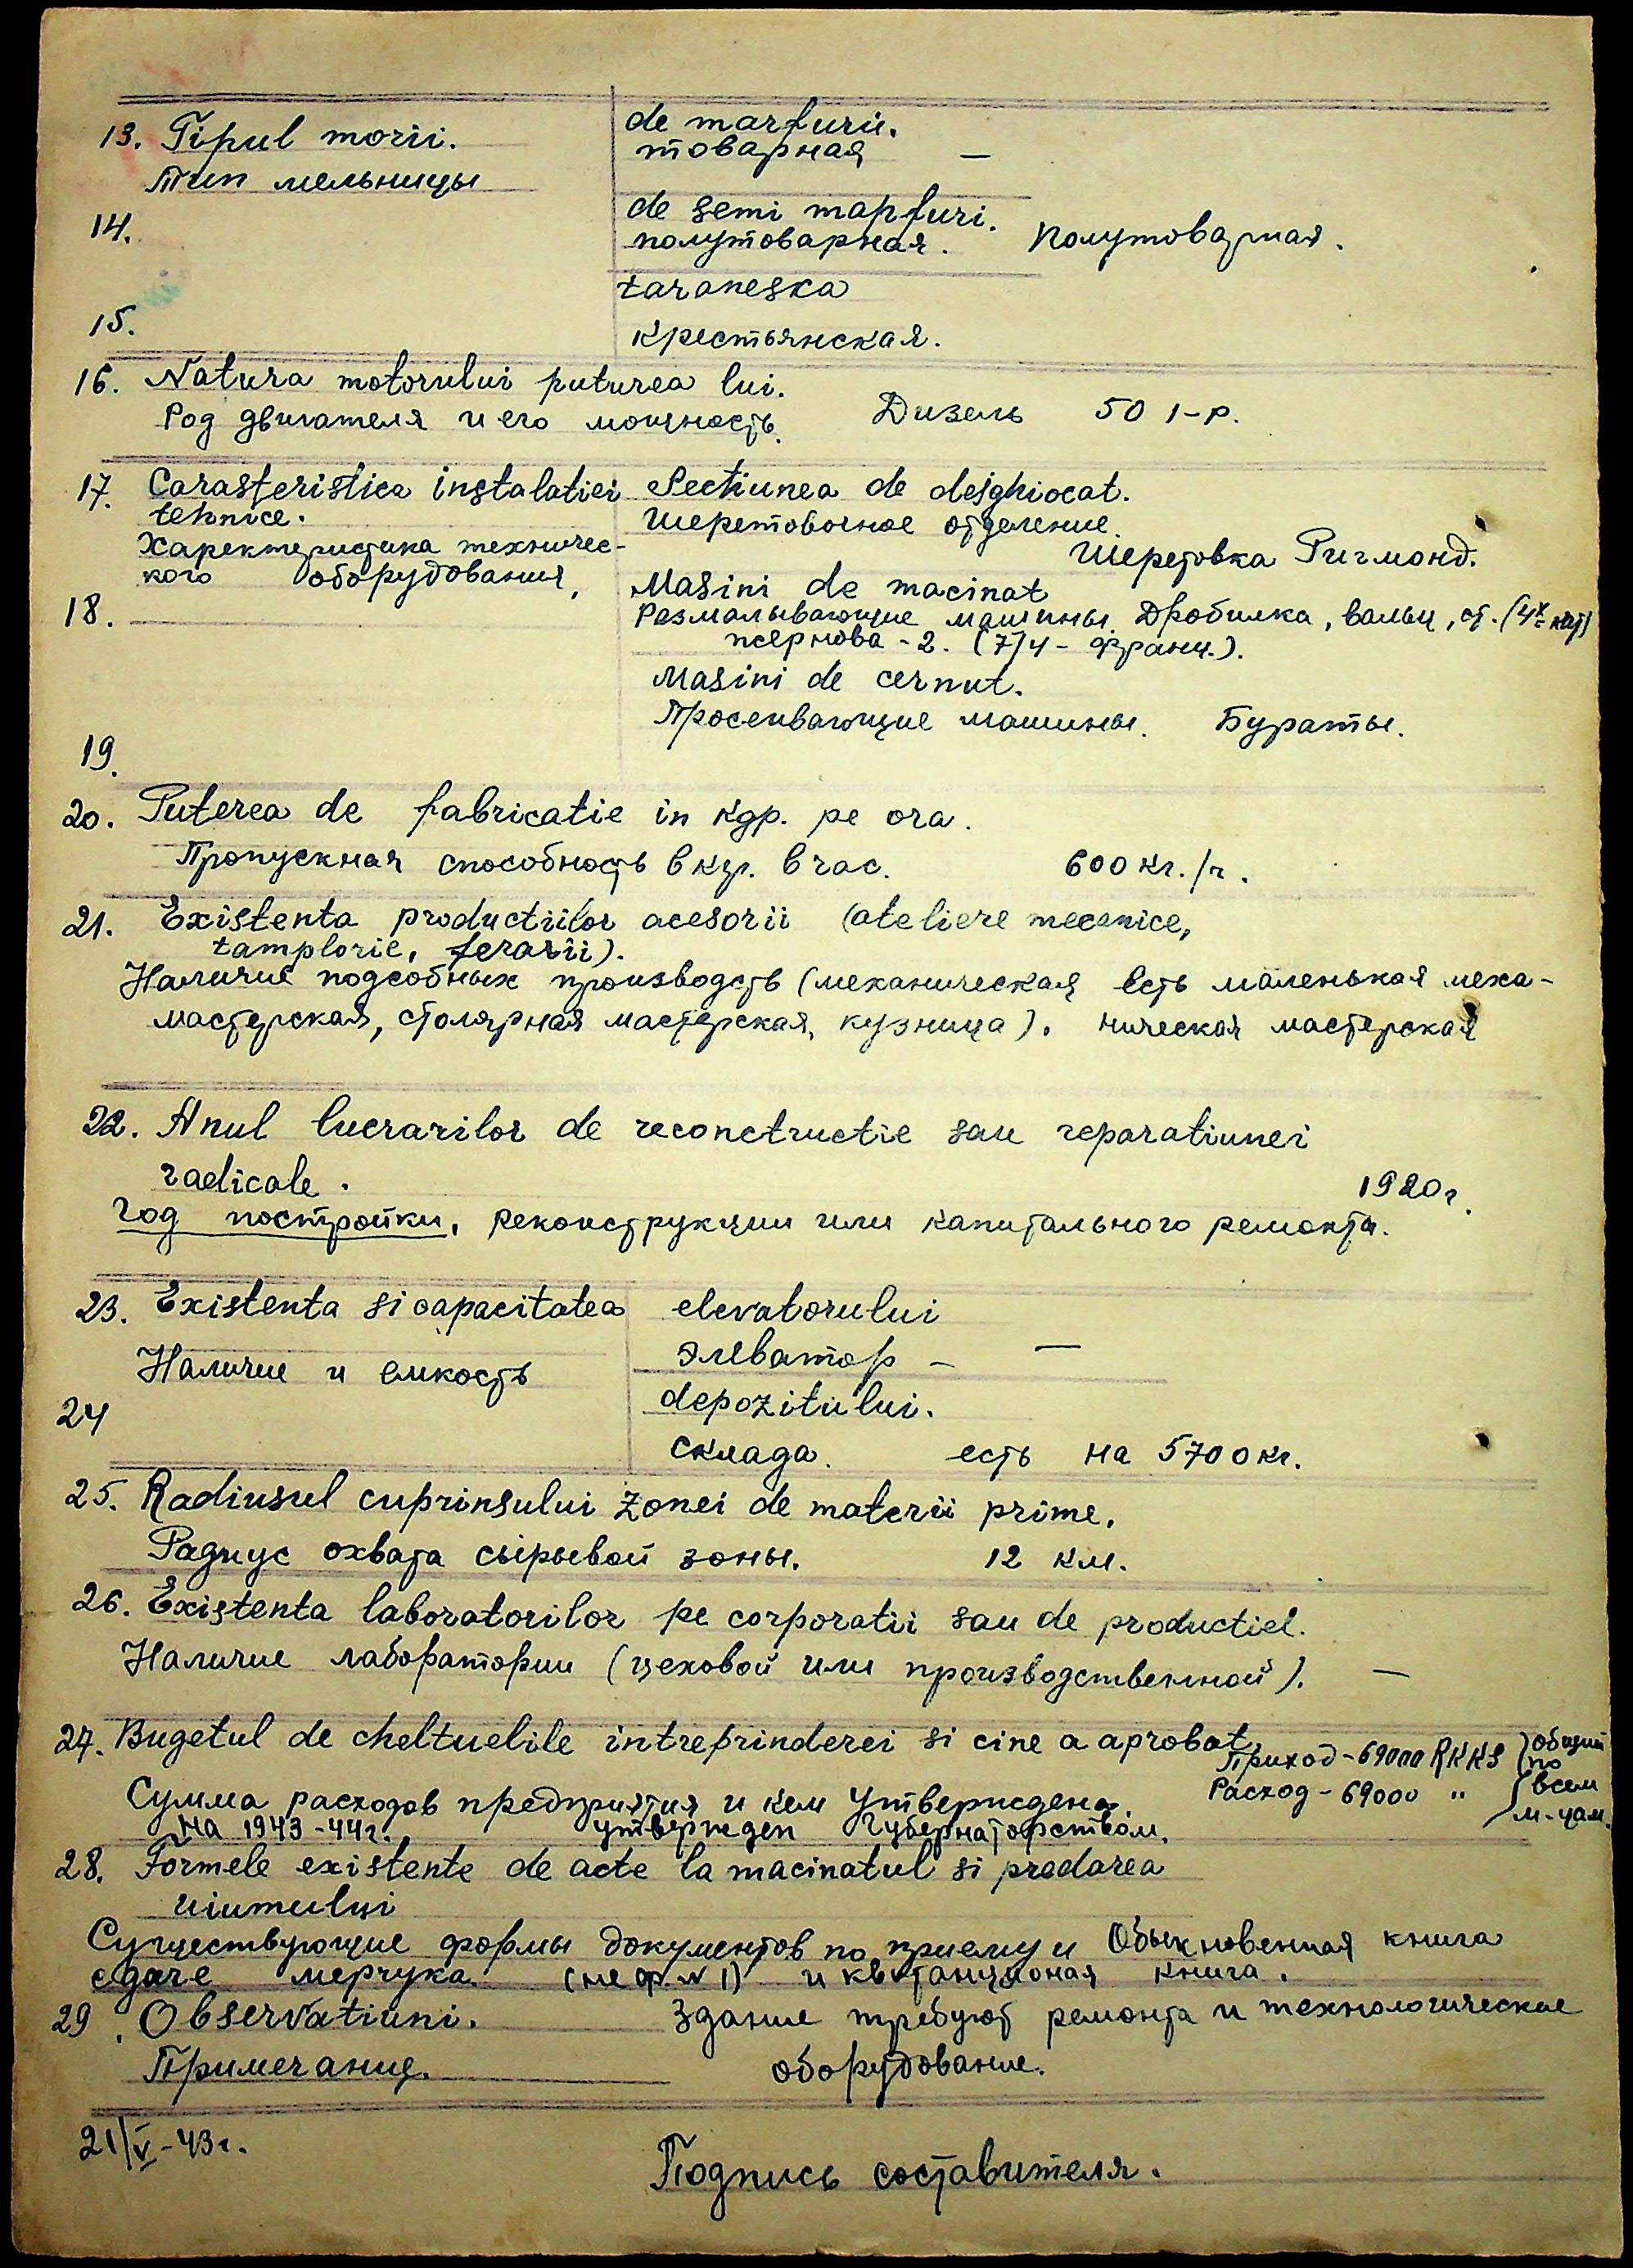 13. Tipul morii.
de marfurii.
товарная —
Тип мельницы
14.
de semi marfuri.
полутоварная. Полутоварная.
taraneska
15.
крестьянская.
16. Natura motorului puturea lui.
Род двигателя и его мощность. Дизель 50
17. Carasteristica instalatiei tehnice.
Sectiunea de dejghiocat.
Шеретовочное отделение.
Характеристика техничес-
кого оборудования.
Шеретовка Ричмонд.
18.
Masini de macinat
Размалывающие машины. Дробилка, вальц, ст.
жернова - 2. (7/4 - франц.).
Masini de cernut.
Просеивающие машины. Бураты.
19.
20. Puterea de fabricatie in kgp. pe ora.
Пропускная способность в кгр. в час. 600 кг./ч.
21. Existenta productiilor acesorii (ateliere mecanice,
tamplorie, ferarii).
Наличие подсобных производств (механическая есть маленькая меха-
мастерская, столярная мастерская, кузница). ническая мастерская
22. Anul lucrarilor de reconctructie sau reparatiunei
radicale.
1920г.
Год постройки, реконструкции или капитального ремонта.
23. Existenta si capacitatea elevatorului
элеватор - —
Наличие и емкость
24
depozitului.
склада. есть на 5700 кг.
25. Radiusul cuprinsului zonei de materii prime.
Радиус охвата сырьевой зоны. 12 км.
26. Existenta laboratorilor pe corporatii sau de productiel.
Наличие лаборатории (цеховой или производственной). —
27. Bugetul de cheltuelile intreprinderei si cine a aprobat.
Приход - 69000 RKKS } общий
по
Сумма расходов предприятия и кем утверждена.
Расход - 69000 " всем
м-цам.
На 1943-44г. утвержден Губернаторством.
28. Formele existente de acte la macinatul si predarea
uiumului
Существующие формы документов по приему и Обыкновенная книга
сдаче мерчука. (не ф. N 1) и квитанционая книга.
29. Observatiuni. Здание требуют ремонта и технологические
Примечание. оборудование.
21/V-43г.
Подпись составителя.